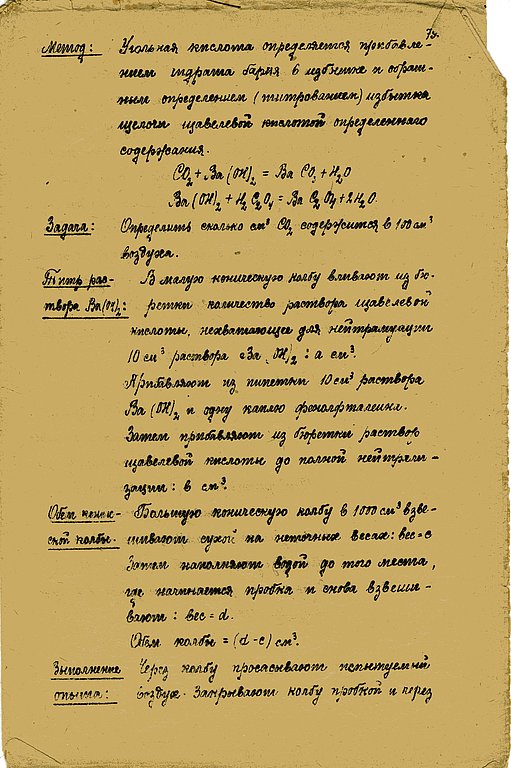 Метод: Угольная кислота определяется прибавле-
нием гидрата бария в избытке и обрат-
ным определением (титрованием) избытка
щелочи щавелевой кислотой определенного
содержания.
CO₂ + Ba(OH)₂ = BaCO₃ + H₂O
Ba(OH)₂ + H₂C₂O₄ = BaC₂O₄ + 2H₂O.
Задача: Определить сколько см³ CO₂ содержится в 100 см³
воздуха.
Титр рас- В малую коническую колбу вливают из бю-
твора Ba(OH)₂: ретки количество раствора щавелевой
кислоты, нехватающее для нейтрализации
10 см³ раствора Ba(OH)₂ : a см³.
Прибавляют из пипетки 10 см³ раствора
Ba(OH)₂ и одну каплю фенолфталеина.
Затем прибавляют из бюретки раствор
щавелевой кислоты до полной нейтрали-
зации: в см³.
Обем кониче- Большую коническую колбу в 1000 см³ взве-
ской колбы. шивают сухой на неточных весах: вес = c
Затем наполняют водой до того места,
где начинается пробка и снова взвеши-
вают: вес = d.
Обем колбы = (d - c) см³.
Выполнение Через колбу просасывают испытуемый
опыта: воздух. Закрывают колбу пробкой и через